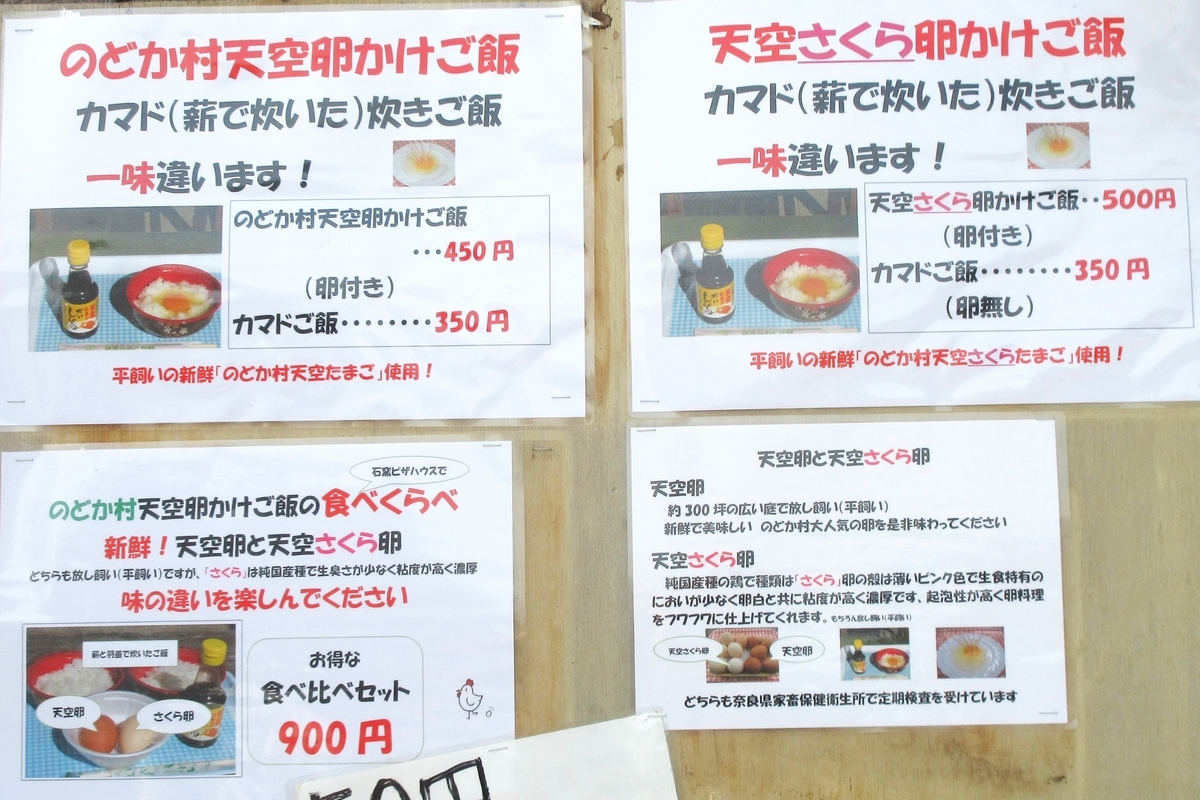 のどか村天空卵かけご飯
カマド(薪で炊いた)炊きご飯
一味違います!
のどか村天空卵かけご飯
・・・450円
(卵付き)
カマドご飯・・・・・・・・350円
平飼いの新鮮「のどか村天空たまご」使用!
天空さくら卵かけご飯
カマド(薪で炊いた)炊きご飯
一味違います!
天空さくら卵かけご飯・・500円
(卵付き)
カマドご飯・・・・・・・・・350円
(卵無し)
平飼いの新鮮「のどか村天空さくらたまご」使用!
石窯ピザハウスで
のどか村天空卵かけご飯の食べくらべ
新鮮!天空卵と天空さくら卵
どちらも放し飼い(平飼い)ですが、「さくら」は純国産種で生臭さが少なく粘度が高く濃厚
味の違いを楽しんでください
薪と羽釜で炊いたご飯
天空卵
さくら卵
お得な
食べ比べセット
900円
天空卵と天空さくら卵
天空卵
約300坪の広い庭で放し飼い(平飼い)
新鮮で美味しい のどか村大人気の卵を是非味わってください
天空さくら卵
純国産種の鶏で種類は「さくら」卵の殻は薄いピンク色で生食特有の
においが少なく卵白と共に粘度が高く濃厚です、起泡性が高く卵料理
をフワフワに仕上げてくれます。もちろん放し飼い(平飼い)
天空さくら卵
天空卵
どちらも奈良県家畜保健衛生所で定期検査を受けています
50円